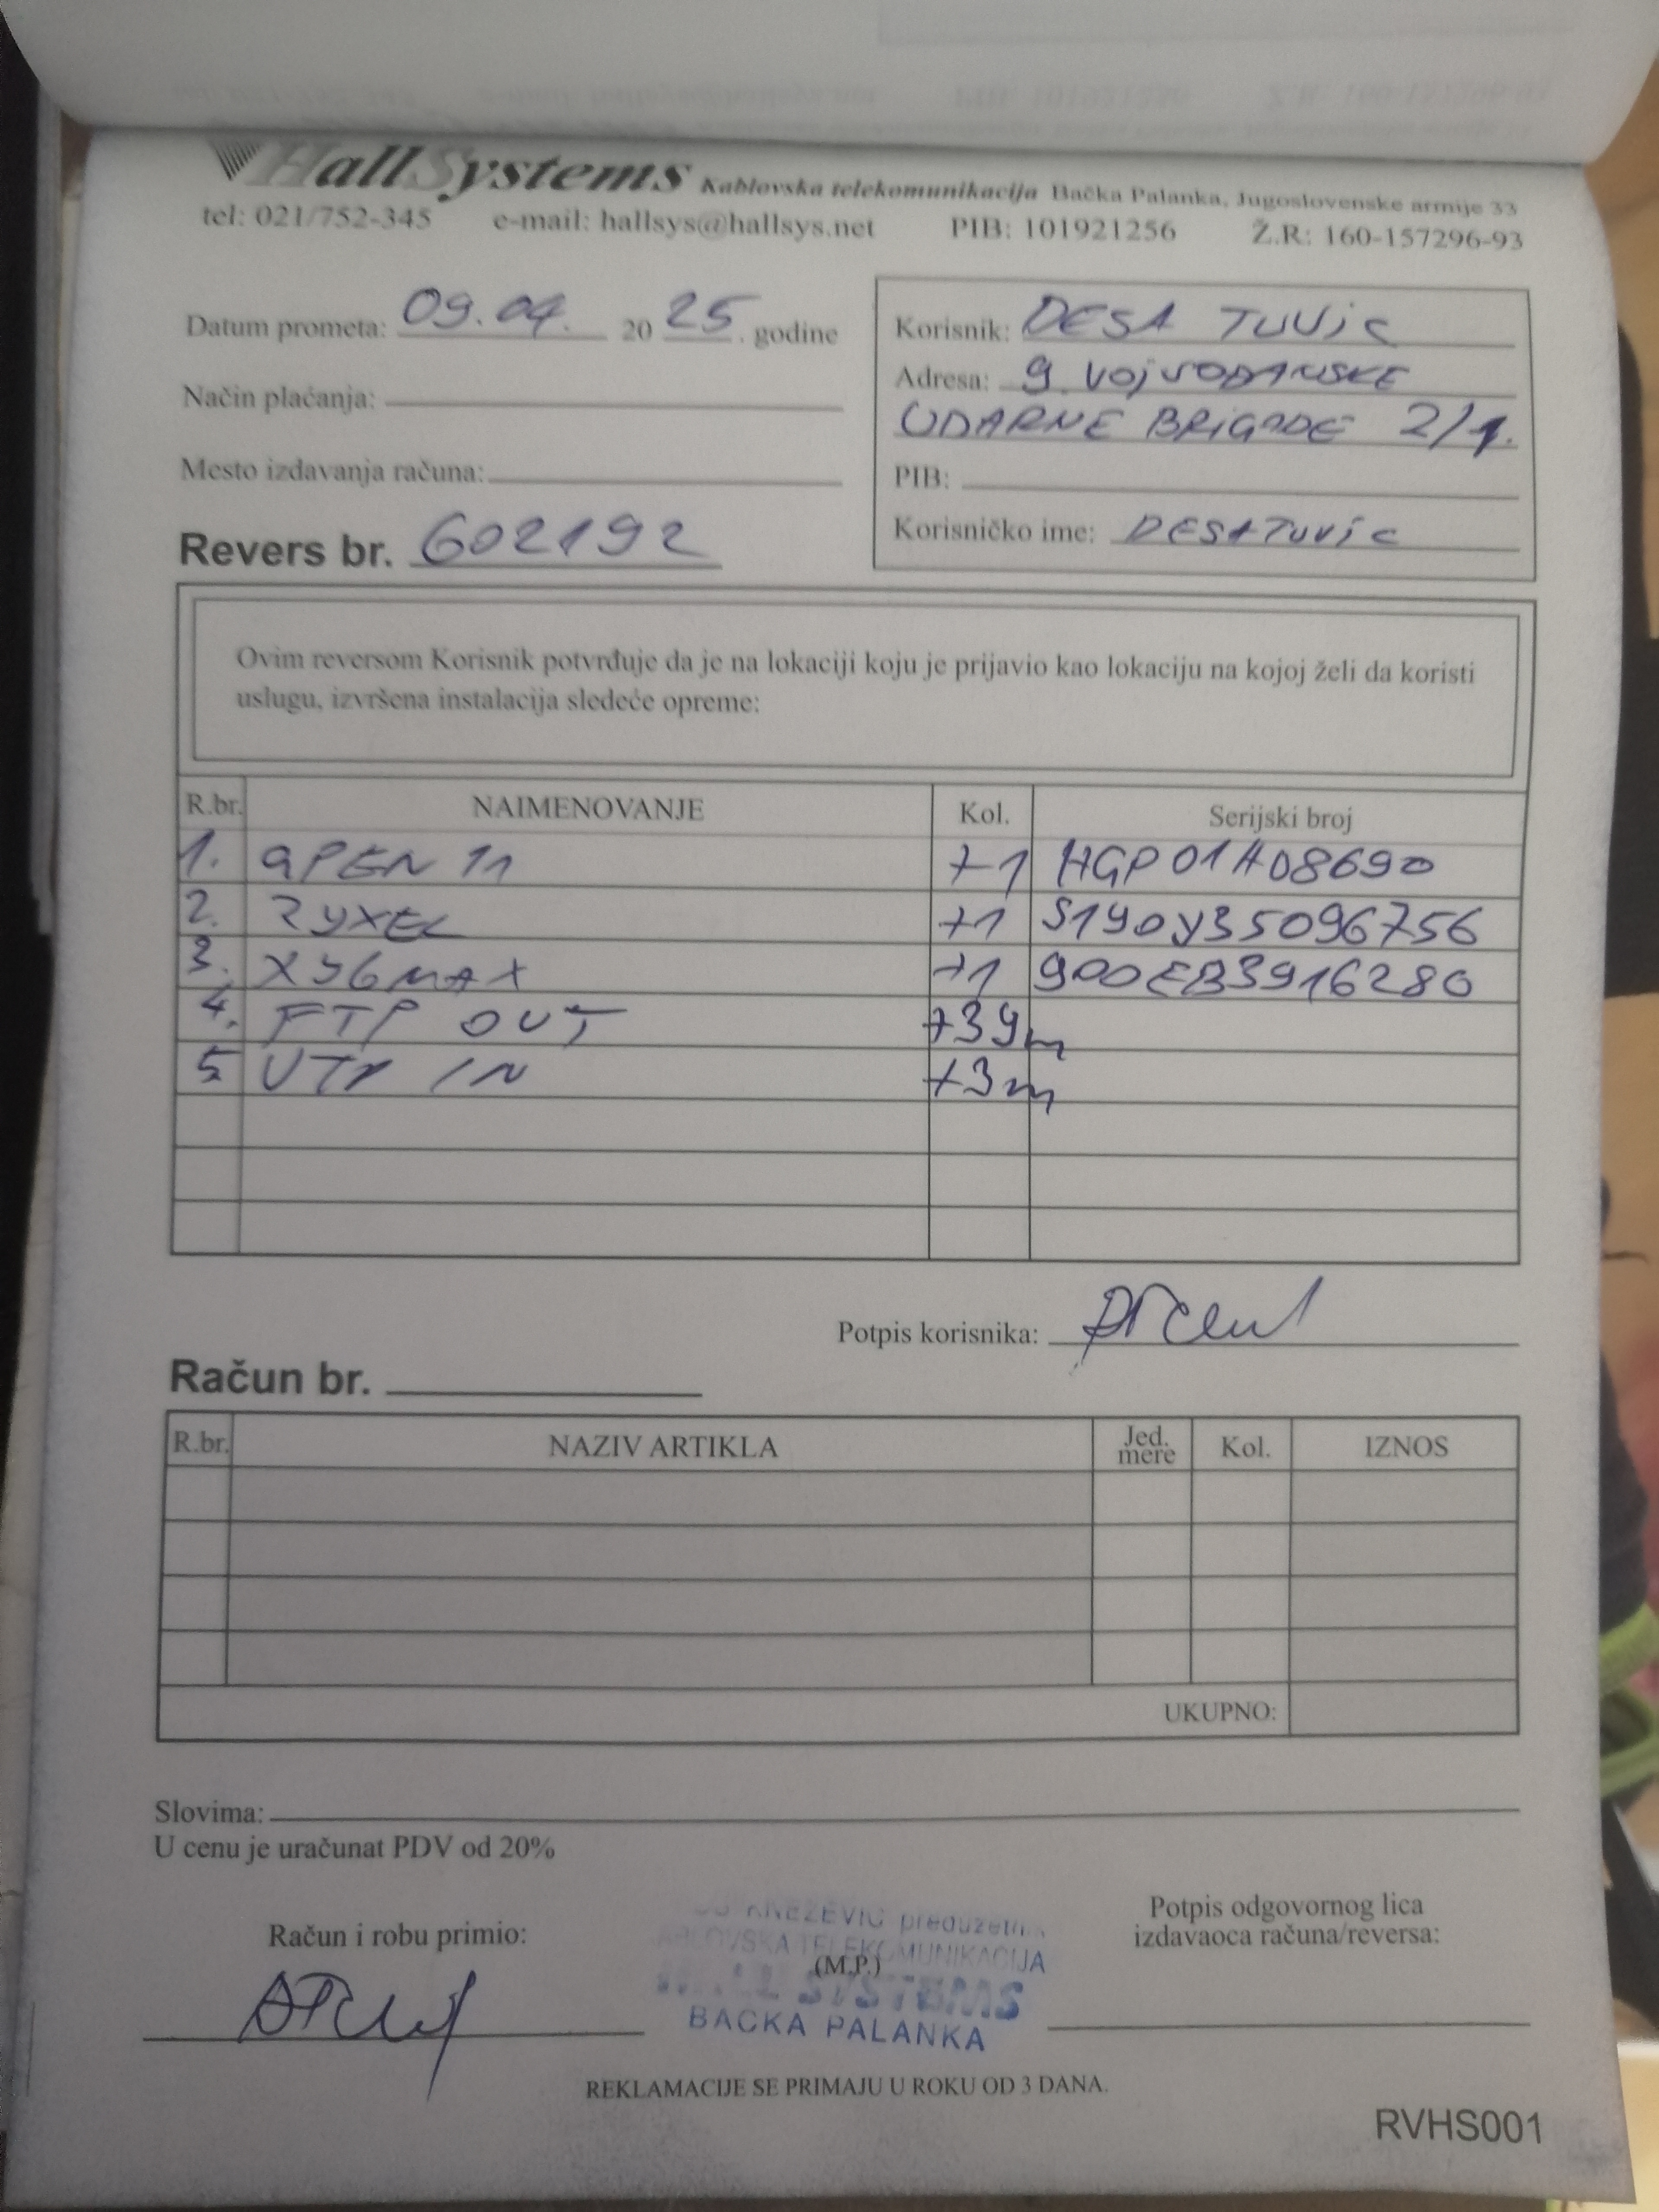 HallSystems Kablovska telekomunikacija Bačka Palanka, Jugoslovenske armije 33
tel: 021/752-345 e-mail: hallsys@hallsys.net PIB: 101921256 Ž.R: 160-157296-93
Datum prometa: 09.04. 20 25. godine
Način plaćanja:
Mesto izdavanja računa:
Revers br. 602192
Korisnik: DESA TUVIC
Adresa: 9. VOJVOĐANSKE
UDARNE BRIGADE 2/1.
PIB:
Korisničko ime: DESATUVIC
Ovim reversom Korisnik potvrđuje da je na lokaciji koju je prijavio kao lokaciju na kojoj želi da koristi
uslugu, izvršena instalacija sledeće opreme:
R.br. NAIMENOVANJE Kol. Serijski broj
1. GPEN 11 +1 HGP01A08690
2. ZYXEL +1 S190Y35096756
3. XYGMAX +1 900EB3916280
4. FTP OUT +39m
5 UTP IN +3m
Potpis korisnika:
Račun br.
R.br. NAZIV ARTIKLA Jed. mere Kol. IZNOS
UKUPNO:
Slovima:
U cenu je uračunat PDV od 20%
Račun i robu primio:
KNEZEVIC preduzetn
TELEKOMUNIKACIJA
(M.P.)
SYSTEMS
BACKA PALANKA
Potpis odgovornog lica
izdavaoca računa/reversa:
REKLAMACIJE SE PRIMAJU U ROKU OD 3 DANA.
RVHS001